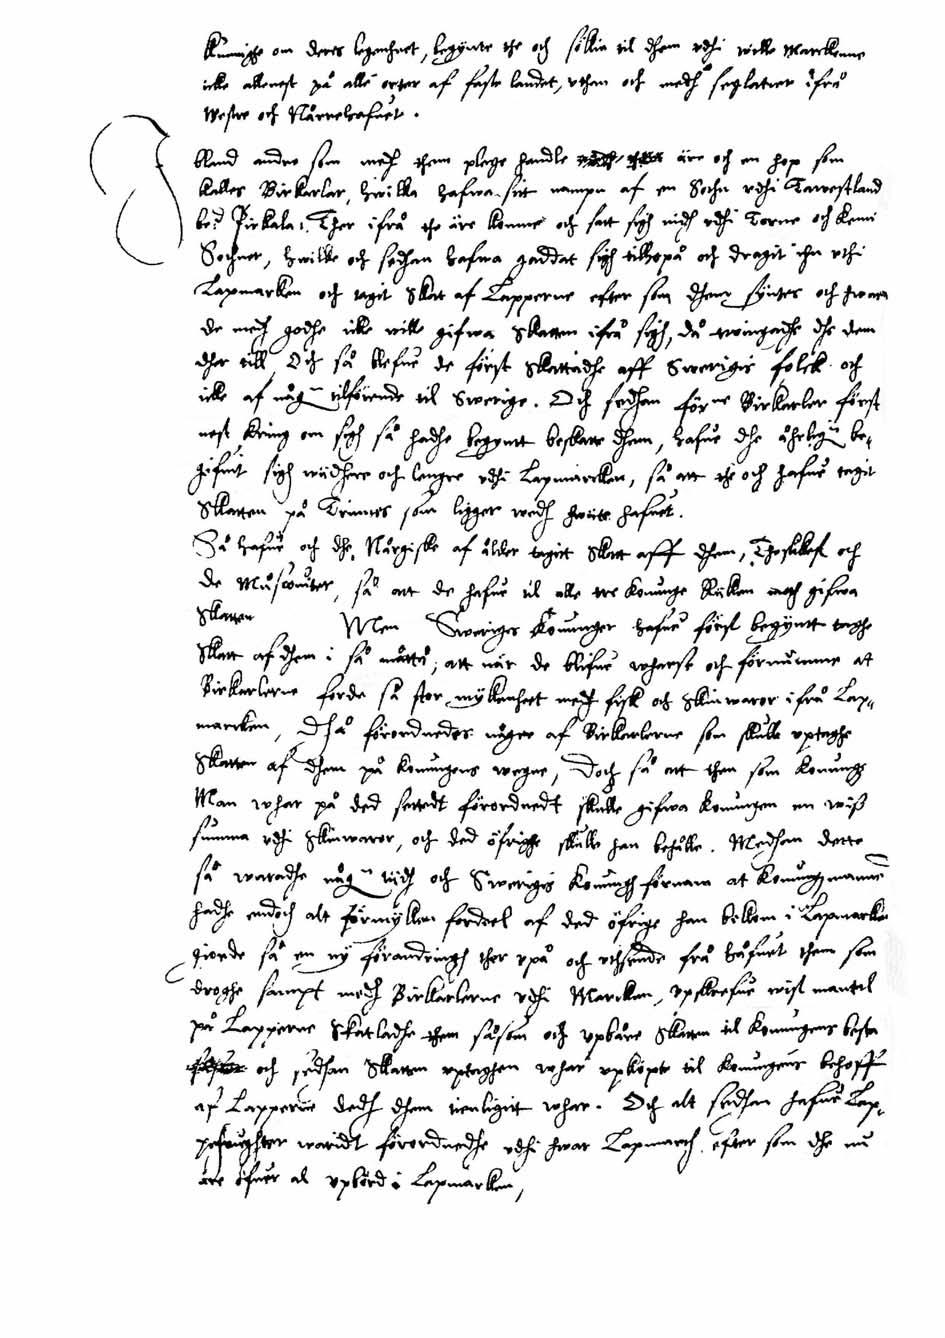 kunnige om deres legenheet, begynte the och sökia til dhem vdhi wille Marckenne
icke allenest på alle orter af faste landet, vthan och medh seglatzer ifrå
Westre och Nårreehafuet.
Ibland andre som medh them plege handle äre och en hop som
kalles Birkarlar, hwilka hafwa sitt nampn af en Sochn vdhi Tawestland
be:d Pirkala. Ther ifrå the äre komne och satt sigh nidh vdhi Torne och Kemi
Sochner, hwilke och sedhan hafwa gaddat sigh tilhopå och dragit in vthi
Lapmarken och tagit Skat af Lapperne efter som dhem syntes och hwar
de medh godhe icke wille gifwa Skatten ifrå sigh, då twingadhe dhe dem
dher till, Och så blefue de först Skattadhe aff Swerigis folck och
icke af någ tilförende til Swerige. Och sedhan förne Birkarler först
nest kring om sigh så hadhe begynt beskatte dhem, hafue dhe åhrlig be-
gifuit sigh widhere och lengre vdhi Lapmarcken, så att the och hafue tagit
Skatten på Trinnes som ligger wedh hwite hafuet.
Så hafue och dhe Nårgiske af ålder tagitt Skatt aff dhem, och
de Muscouiter, så att de hafue til alle tre Konunge Riken gifwa
Skatten Men Sweriges Konunger hafue först begynt taghe
Skatt af dhem i så måtte, att när de blifue wharse och förnumme at
Birkarlerne forde så stor mykenheet medh fisk och Skinwaror ifrå Lap-
marcken, Dhå förordnedes någre af Birkarlerne som skulle vptaghe
Skatten af dhem på Konungens wegne, Doch så att then som Konungs
Man whar på ded settedt förordnedt skulle gifwa Konungen en wiss
summa vdhi Skinwaror, och ded öfrighe skulle han beholle. Medhan dette
så waradhe någ tidh och Swerigis Konungh förnam at Konungz mannen
hadhe endoch alt förmyken fordeel af ded öfrige han bekom i Lapmarken
giorde så en ny förandringh ther vpå och vthsende frå håfuet them som
droghe sampt medh Birkarlerne vdhi Marcken, vpskrefue wist mantel
på Lapperne Skatladhe them såsom och vpbäre Skatten til Konungens beste
och sedhan Skatten vptaghen whar vpköpte til Konungens behoff
af Lapperne dedh dhem tienligitt whar. Och alt sedhan hafue Lap-
pefougther waridt förordnedhe vdhi hwar Lapmarch efter som dhe nu
äre öfuer al vpbörd i Lapmarken,